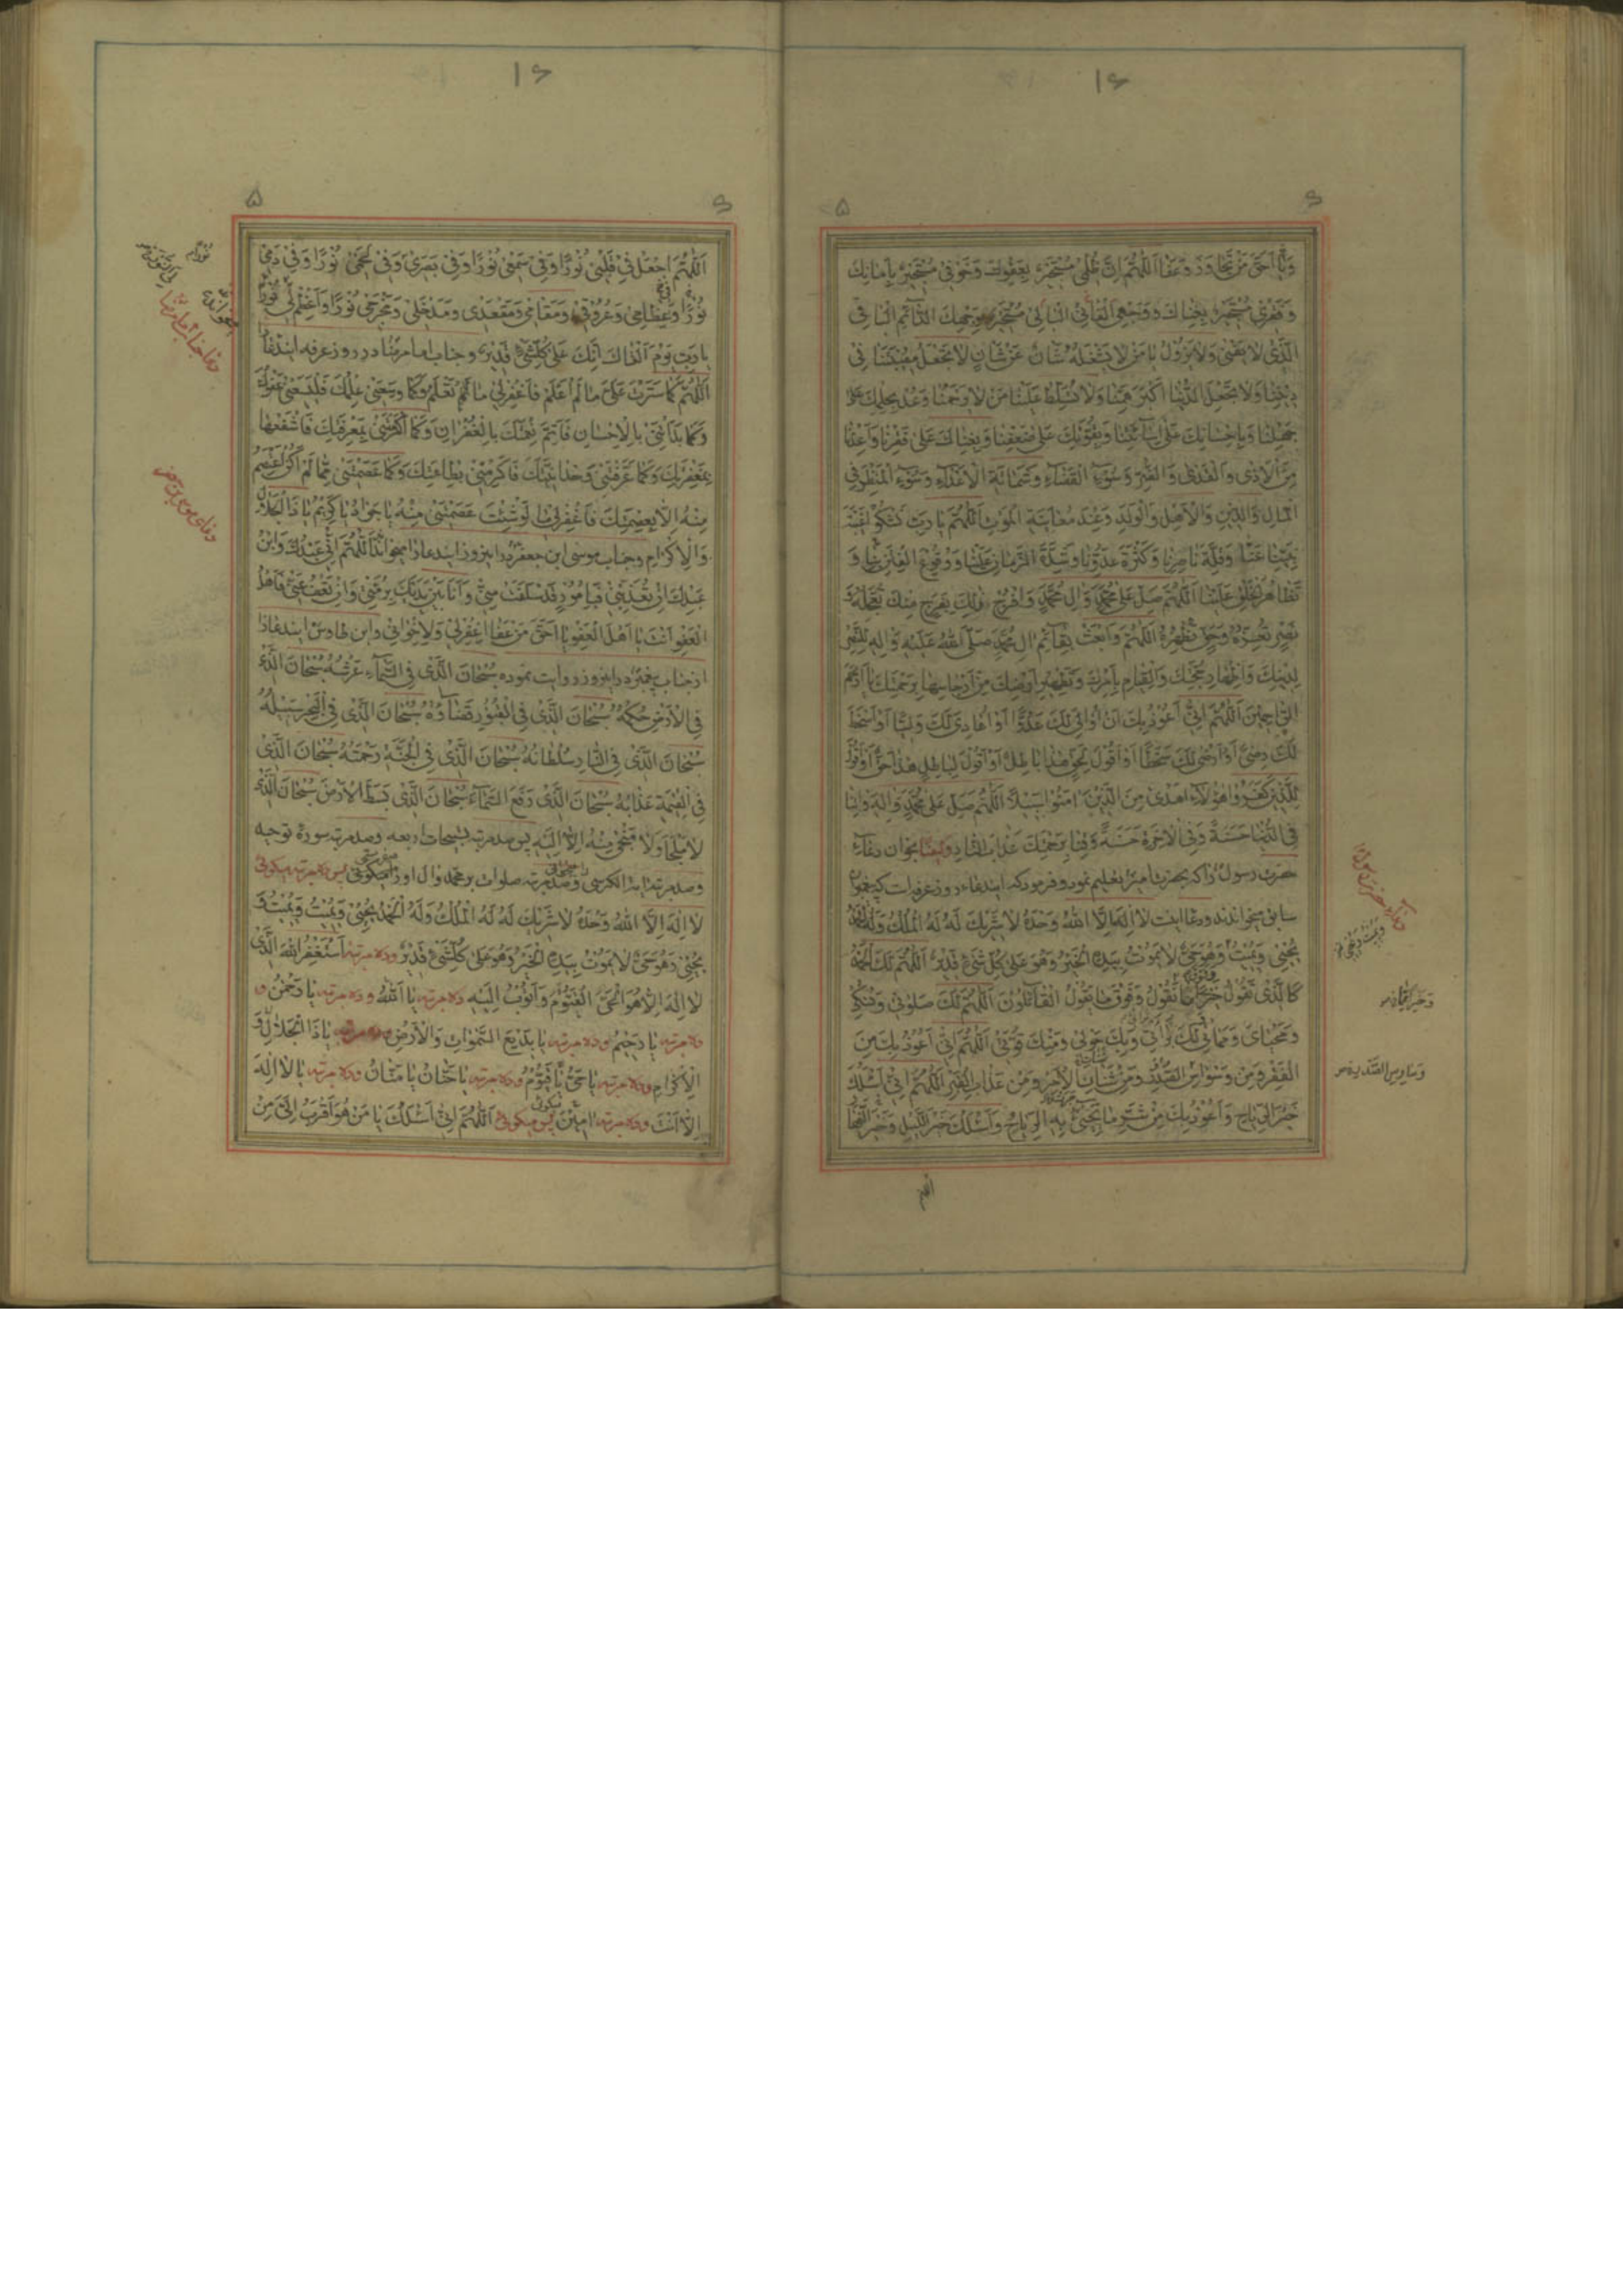 وَيٰا اَحَقَّ مَنْ تَجاوَزَ وَعَفٰا اَللّٰهُمَّ اِنَّ ظُلْمى مُسْتَجيرٌ بِعَفْوِكَ وَخَوْفى مُسْتَجيرٌ بِاَمانِكَ
وَفَقْرى مُسْتَجيرٌ بِغِناكَ وَوَجْهِىَ الْفانِى الْبالى مُسْتَجيرٌ بِوَجْهِكَ الدّآئِمِ الْباقى
الَّذى لا يَفْنى وَلا يَزُولُ يٰا مَنْ لا يَشْغَلُهُ شَانٌ عَنْ شَانٍ لا تَجْعَلْ مُصيبَتَنا فى
دينِنا وَلا تَجْعَلِ الدُّنْيا اَكْبَرَ هَمِّنا وَلا تُسَلِّطْ عَلَيْنا مَنْ لا يَرْحَمُنا وَعُدْ بِحِلْمِكَ عَلى
جَهْلِنا وَبِاِحْسانِكَ عَلى اِسآئَتِنا وَبِقُوَّتِكَ عَلى ضَعْفِنا وَبِغِناكَ عَلى فَقْرِنا وَاَعِذْنا
مِنَ الْاَذى وَالْعِدى وَالضُّرِّ وَسُوءِ الْقَضآءِ وَشَماتَةِ الْاَعْدآءِ وَسُوءِ الْمَنْظَرِ فِى
الْمالِ وَالدّينِ وَالْاَهْلِ وَالْوَلَدِ وَعِنْدَ مُعايَنَةِ الْمَوْتِ اَللّٰهُمَّ يا رَبِّ نَشْكُو غَيْبَةَ
نَبِيِّنا عَنّا وَقِلَّةَ ناصِرِنا وَكَثْرَةَ عَدُوِّنا وَشِدَّةَ الزَّمانِ عَلَيْنا وَوُقُوعَ الْفِتَنِ بِنا وَ
تَظاهُرَ الْخَلْقِ عَلَيْنا اَللّٰهُمَّ صَلِّ عَلى مُحَمَّدٍ وَآلِ مُحَمَّدٍ وَافْرُجْ ذٰلِكَ بِفَرَجٍ مِنْكَ تُعَجِّلُهُ وَ
نَصْرٍ تُعِزُّهُ وَحَقٍّ تُظْهِرُهُ اَللّٰهُمَّ وَابْعَثْ بِقآئِمِ آلِ مُحَمَّدٍ صَلَّى اللهُ عَلَيْهِ وَآلِهِ لِلنَّصْرِ
لِدينِكَ وَاِظْهارِ حُجَّتِكَ وَالْقِيامِ بِاَمْرِكَ وَتَطْهيرِ اَرْضِكَ مِنْ اَرْجاسِها بِرَحْمَتِكَ يا اَرْحَمَ
الرّاحِمينَ اَللّٰهُمَّ اِنّى اَعُوذُ بِكَ اَنْ اُوالِىَ لَكَ عَدُوًّا اَوْ اُعادِىَ لَكَ وَلِيًّا اَوْ اَسْخَطَ
لَكَ رِضىً اَوْ اَرْضى لَكَ سَخَطًا اَوْ اَقُولَ لِحَقٍّ هٰذا باطِلٌ اَوْ اَقُولَ لِباطِلٍ هٰذا حَقٌّ اَوْ اَقُولَ
لِلَّذينَ كَفَرُوا هٰؤُلآءِ اَهْدى مِنَ الَّذينَ آمَنُوا سَبيلًا اَللّٰهُمَّ صَلِّ عَلى مُحَمَّدٍ وَآلِهِ وَآتِنا
فِى الدُّنْيا حَسَنَةً وَفِى الْاٰخِرَةِ حَسَنَةً وَقِنا بِرَحْمَتِكَ عَذابَ النّارِ بخوان دعآء
حضرت رسول را كه بحضرت امير تعليم نمود و فرمود كه ايندعاء روز عرفه است كه پيغمبران
سابق ميخواندند و دعا اينست لا اِلٰهَ اِلَّا اللهُ وَحْدَهُ لا شَريكَ لَهُ لَهُ الْمُلْكُ وَلَهُ الْحَمْدُ
يُحْيى وَيُميتُ وَهُوَ حَىٌّ لا يَمُوتُ بِيَدِهِ الْخَيْرُ وَهُوَ عَلى كُلِّ شَىْءٍ قَديرٌ اَللّٰهُمَّ لَكَ الْحَمْدُ
كَالَّذى تَقُولُ خَيْرًا مِمّا نَقُولُ وَفَوْقَ ما يَقُولُ الْقآئِلُونَ اَللّٰهُمَّ لَكَ صَلوتى وَنُسُكى
وَمَحْياىَ وَمَماتى لَكَ بَرآئَتى وَبِكَ حَوْلى وَمِنْكَ قُوَّتى اَللّٰهُمَّ اِنّى اَعُوذُ بِكَ مِنَ
الْفَقْرِ وَمِنْ وَسْواسِ الصَّدْرِ وَمِنْ شَتاتِ الْاَمْرِ وَمِنْ عَذابِ الْقَبْرِ اَللّٰهُمَّ اِنّى اَسْئَلُكَ
خَيْرَ الرِّياحِ وَاَعُوذُ بِكَ مِنْ شَرِّ ما تَجيئُ بِهِ الرِّياحُ وَاَسْئَلُكَ خَيْرَ اللَّيْلِ وَخَيْرَ النَّهارِ
اللهم
اَللّٰهُمَّ اجْعَلْ فى قَلْبى نُورًا وَفى سَمْعى نُورًا وَفى بَصَرى وَفى لَحْمى نُورًا وَفى دَمى
نُورًا وَعِظامى وَعُرُوقى وَمَقامى وَمَقْعَدى وَمَدْخَلى وَمَخْرَجى نُورًا وَاَعْظِمْ لى نُورًا
يا رَبِّ يَوْمَ اَلْقاكَ اِنَّكَ عَلى كُلِّشَىْءٍ قَديرٌ وجناب امام رضا در روز عرفه ايندعا
اَللّٰهُمَّ كَما سَتَرْتَ عَلَىَّ ما لَمْ اَعْلَمْ فَاغْفِرْ لى ما تَعْلَمُ وَكَما وَسِعَنى عِلْمُكَ فَلْيَسَعْنى عَفْوُكَ
وَكَما بَدَاْتَنى بِالْاِحْسانِ فَاَتِمَّ نِعْمَتَكَ بِالْغُفْرانِ وَكَما اَكْرَمْتَنى بِمَعْرِفَتِكَ فَاشْفَعْها
بِمَغْفِرَتِكَ وَكَما عَرَّفْتَنى وَحْدانِيَّتَكَ فَاَكْرِمْنى بِطاعَتِكَ وَكَما عَصَمْتَنى مِمّا لَمْ اَكُنْ اَعْتَصِمُ
مِنْهُ اِلّا بِعِصْمَتِكَ فَاغْفِرْ لى ما لَوْ شِئْتَ عَصَمْتَنى مِنْهُ يا جَوادُ يا كَريمُ يا ذَا الْجَلالِ
وَالْاِكْرامِ وجناب موسى ابن جعفر در اينروز ايندعا را ميخواند اَللّٰهُمَّ اِنّى عَبْدُكَ وَابْنُ
عَبْدِكَ اِنْ تُعَذِّبْنى فَبِاُمُورٍ قَدْ سَلَفَتْ مِنّى وَاَنَا بَيْنَ يَدَيْكَ بِرُمَّتى وَاِنْ تَعْفُ عَنّى فَاَهْلُ
الْعَفْوِ اَنْتَ يا اَهْلَ الْعَفْوِ يا اَحَقَّ مَنْ عَفا اِغْفِرْ لى وَلِاِخْوانى وابن طاوس ايندعا را
از جناب پيغمبر در اينروز روايت نموده سُبْحانَ الَّذى فِى السَّمآءِ عَرْشُهُ سُبْحانَ الَّذى
فِى الْاَرْضِ حُكْمُهُ سُبْحانَ الَّذى فِى الْقُبُورِ قَضآؤُهُ سُبْحانَ الَّذى فِى الْبَحْرِ سَبيلُهُ
سُبْحانَ الَّذى فِى النّارِ سُلْطانُهُ سُبْحانَ الَّذى فِى الْجَنَّةِ رَحْمَتُهُ سُبْحانَ الَّذى
فِى الْقِيٰمَةِ عَدْلُهُ سُبْحانَ الَّذى رَفَعَ السَّمآءَ سُبْحانَ الَّذى بَسَطَ الْاَرْضَ سُبْحانَ الَّذى
لا مَلْجَاَ وَلا مَنْجٰى مِنْهُ اِلّا اِلَيْهِ پس صد مرتبه تسبيحات اربعه و صد مرتبه سوره توحيد
و صد مرتبه آية الكرسى و صد مرتبه صلوات بر محمد و آل او را ميگوئى پس ده مرتبه ميگوئى
لا اِلٰهَ اِلَّا اللهُ وَحْدَهُ لا شَريكَ لَهُ لَهُ الْمُلْكُ وَلَهُ الْحَمْدُ يُحْيى وَيُميتُ وَيُميتُ وَ
يُحْيى وَهُوَ حَىٌّ لا يَمُوتُ بِيَدِهِ الْخَيْرُ وَهُوَ عَلى كُلِّشَىْءٍ قَديرٌ و ده مرتبه اَسْتَغْفِرُ اللهَ الَّذى
لا اِلٰهَ اِلّا هُوَ الْحَىُّ الْقَيُّومُ وَاَتُوبُ اِلَيْهِ و ده مرتبه يا اَللهُ و ده مرتبه يا رَحْمٰنُ و
ده مرتبه يا رَحيمُ و ده مرتبه يا بَديعَ السَّمٰواتِ وَالْاَرْضِ و ده مرتبه يا ذَا الْجَلالِ وَ
الْاِكْرامِ و ده مرتبه يا حَىُّ يا قَيُّومُ و ده مرتبه يا حَنّانُ يا مَنّانُ و ده مرتبه يا لا اِلٰهَ
اِلّا اَنْتَ و ده مرتبه آمينَ پس ميگوئى اَللّٰهُمَّ اِنّى اَسْئَلُكَ يا مَنْ هُوَ اَقْرَبُ اِلَىَّ مِنْ